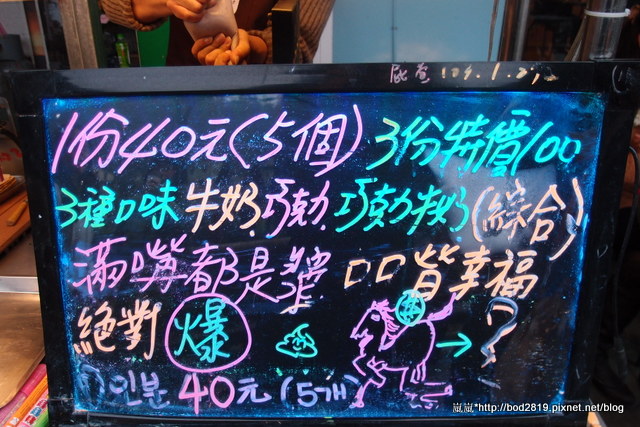 1份40元(5個) 3份特價100
3種口味 牛奶.巧克力.巧克力牛奶(綜合)
滿嘴都是漿 口口皆幸福
絕對 爆 → ?
①인분 40元 (5개)
嵐嵐*http://bod2819.pixnet.net/blog